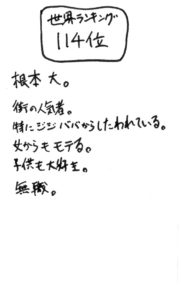 世界ランキング
114位
根本 大。
街の人気者。
特にジジババからしたわれている。
女からもモテる。
子供も大好き。
無職。